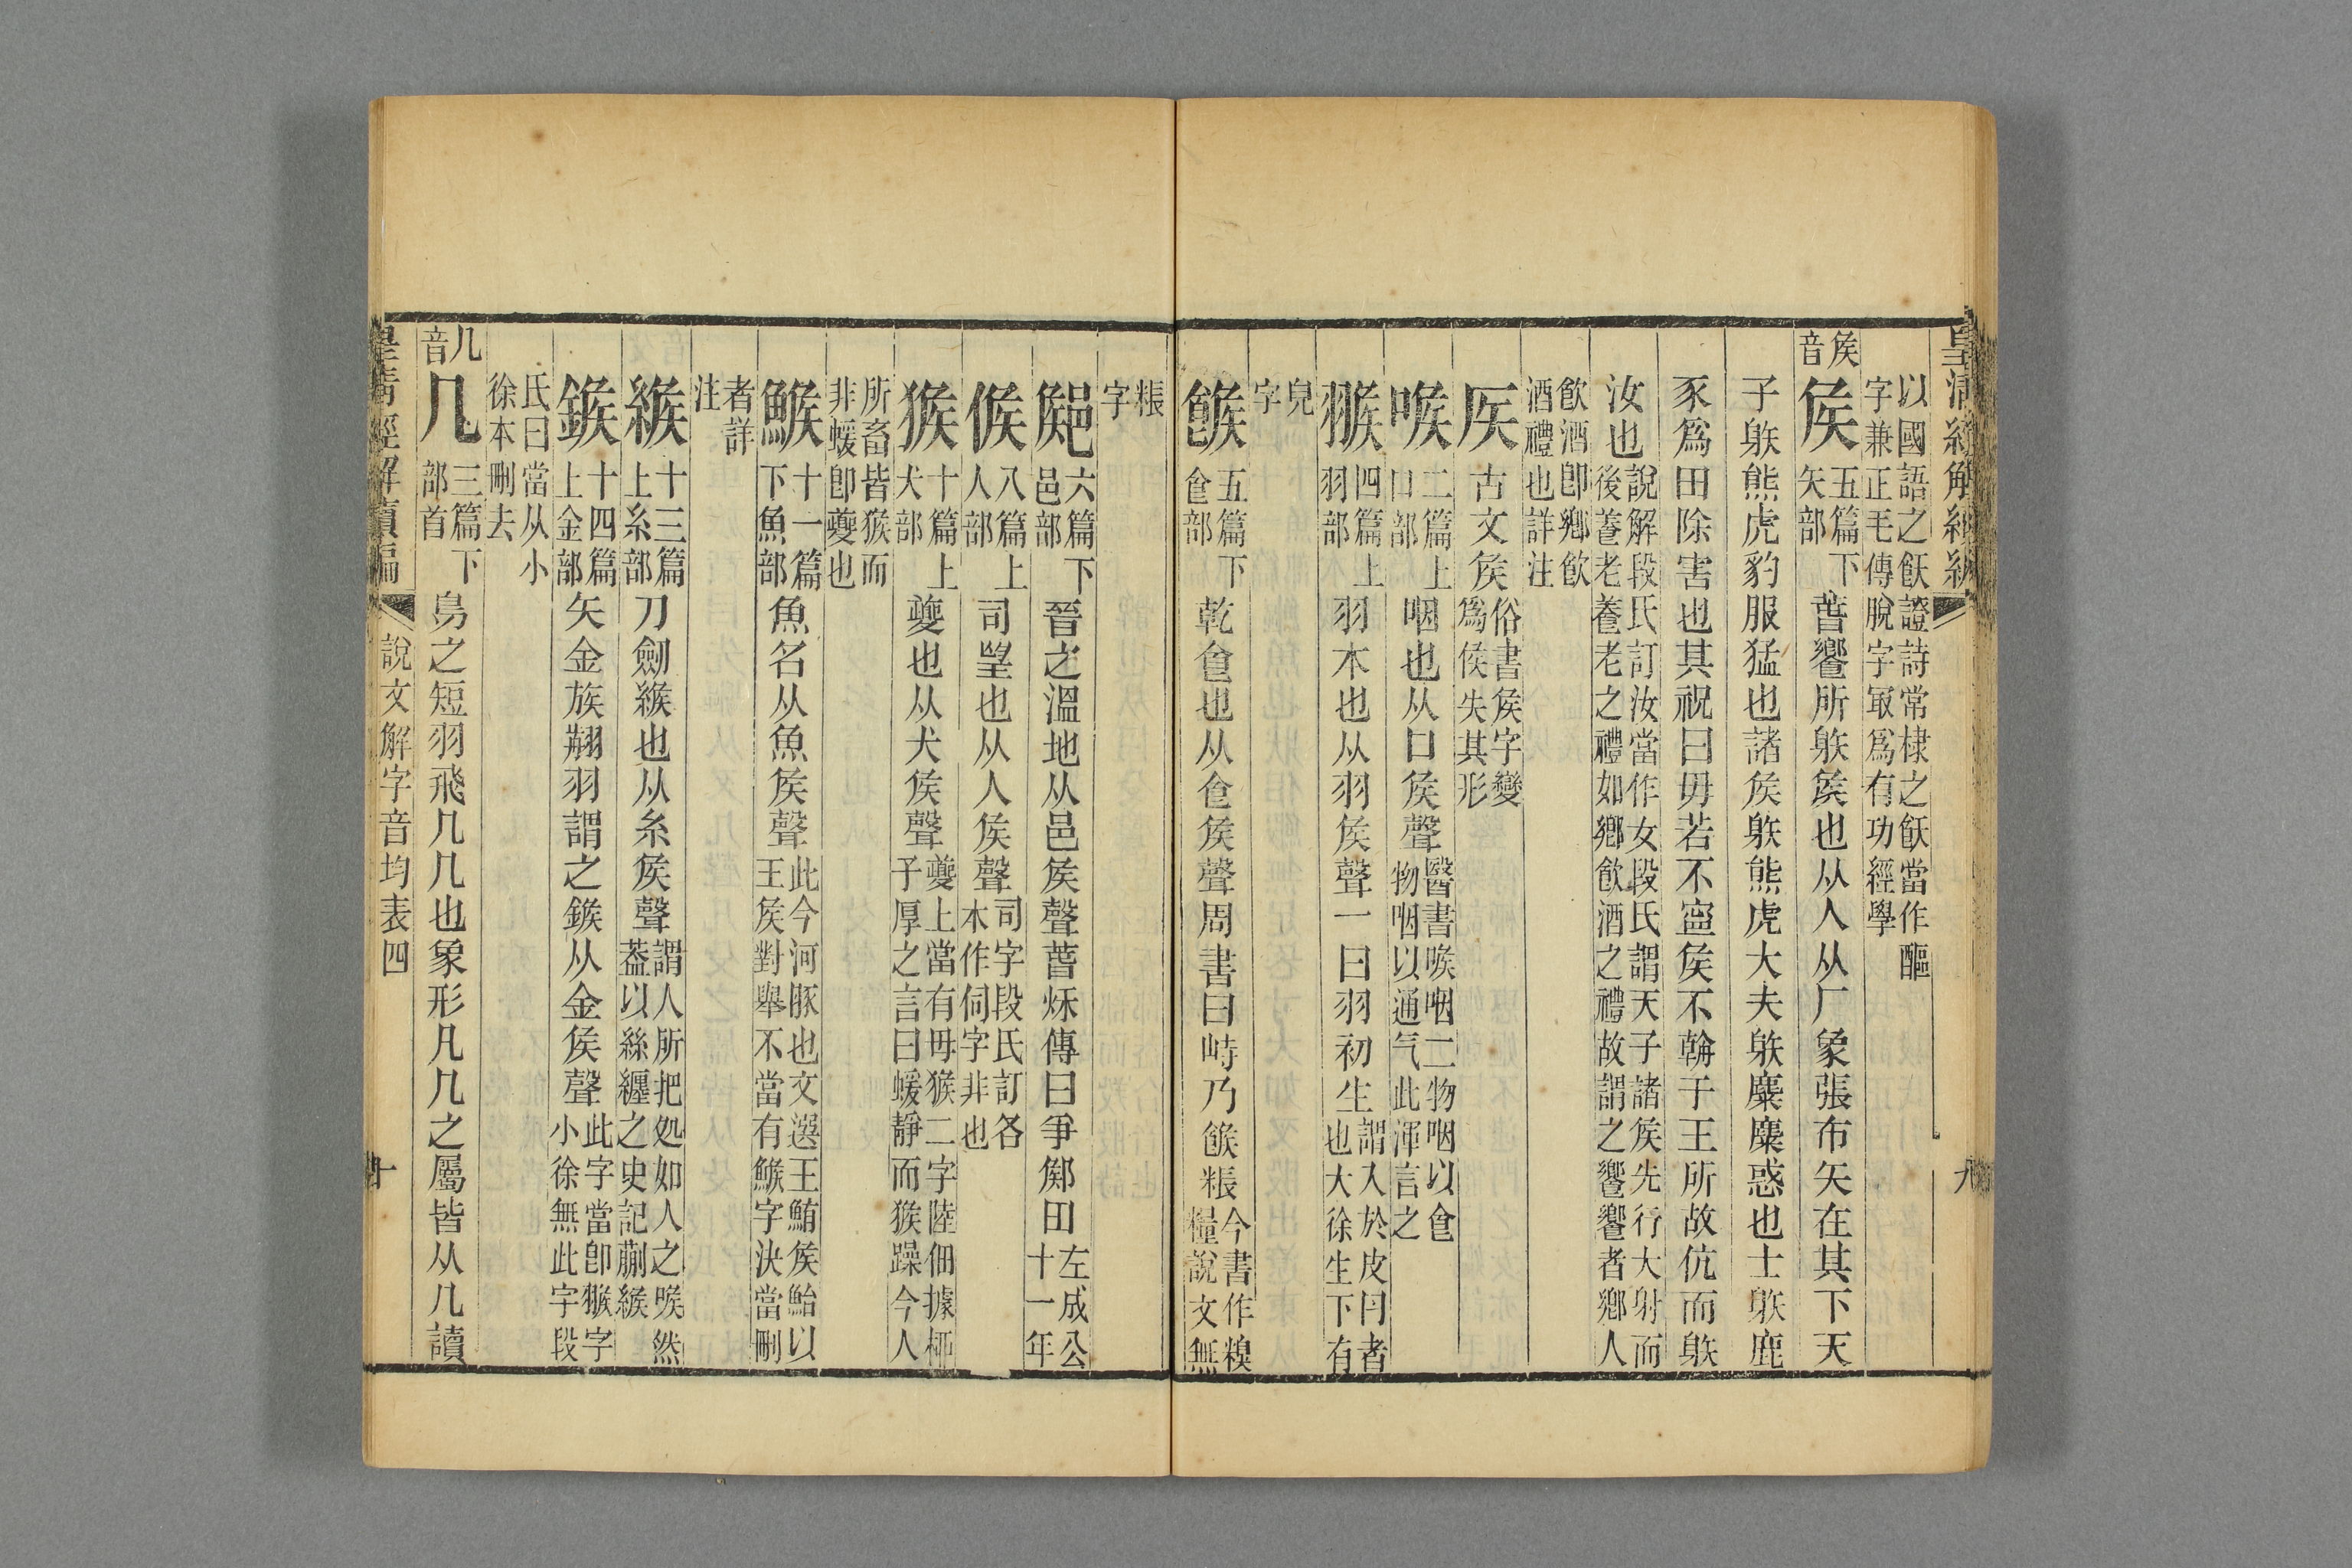 皇清經解續編
九
以國語之飫證詩常棣之飫當作醧
字兼正毛傳脫字冣爲有功經學
矦音
矦 五篇下矢部 萅饗所䠶矦也从人从厂象張布矢在其下天
子䠶熊虎豹服猛也諸矦䠶熊虎大夫䠶麋麋惑也士䠶鹿
豕爲田除害也其祝曰毋若不寍矦不朝于王所故伉而䠶
汝也 說解段氏訂汝當作女段氏謂天子諸矦先行大射而
後養老養老之禮如鄉飮酒之禮故謂之饗饗者鄉人
飮酒卽鄉飮
酒禮也詳注
𥎦 古文矦 俗書矦字變
爲侯失其形
喉 二篇上口部 咽也从口矦聲 醫書喉咽二物咽以食
物咽以通气此渾言之
翭 四篇上羽部 羽本也从羽矦聲一曰羽初生 謂入於皮円者
也大徐生下有
皃
字
餱 五篇下食部 乾食也从食矦聲周書曰峙乃餱粻 今書作糗
糧說文無
粻
字
鄇 六篇下邑部 晉之溫地从邑矦聲萅秌傳曰爭鄇田 左成公
十一年
候 八篇上人部 司朢也从人矦聲 司字段氏訂各
本作伺字非也
猴 十篇上犬部 夔也从犬矦聲 夔上當有毋猴二字陸佃據栁
子厚之言曰蝯靜而猴躁今人
所畜皆猴而
非蝯卽夔也
鯸 十一篇下魚部 魚名从魚矦聲 此今河豚也文選王鮪矦鮐以
王矦對舉不當有鯸字決當刪
者詳
注
緱 十三篇上糸部 刀劒緱也从糸矦聲 謂人所把処如人之喉然
葢以絲纏之史記蒯緱
鍭 十四篇上金部 矢金族翦羽謂之鍭从金矦聲 此字當卽翭字
小徐無此字段
氏曰當从小
徐本刪去
几音
几 三篇下部首 鳥之短羽飛几几也象形凡几之屬皆从几讀
皇清經解續編
說文解字音均表四
十